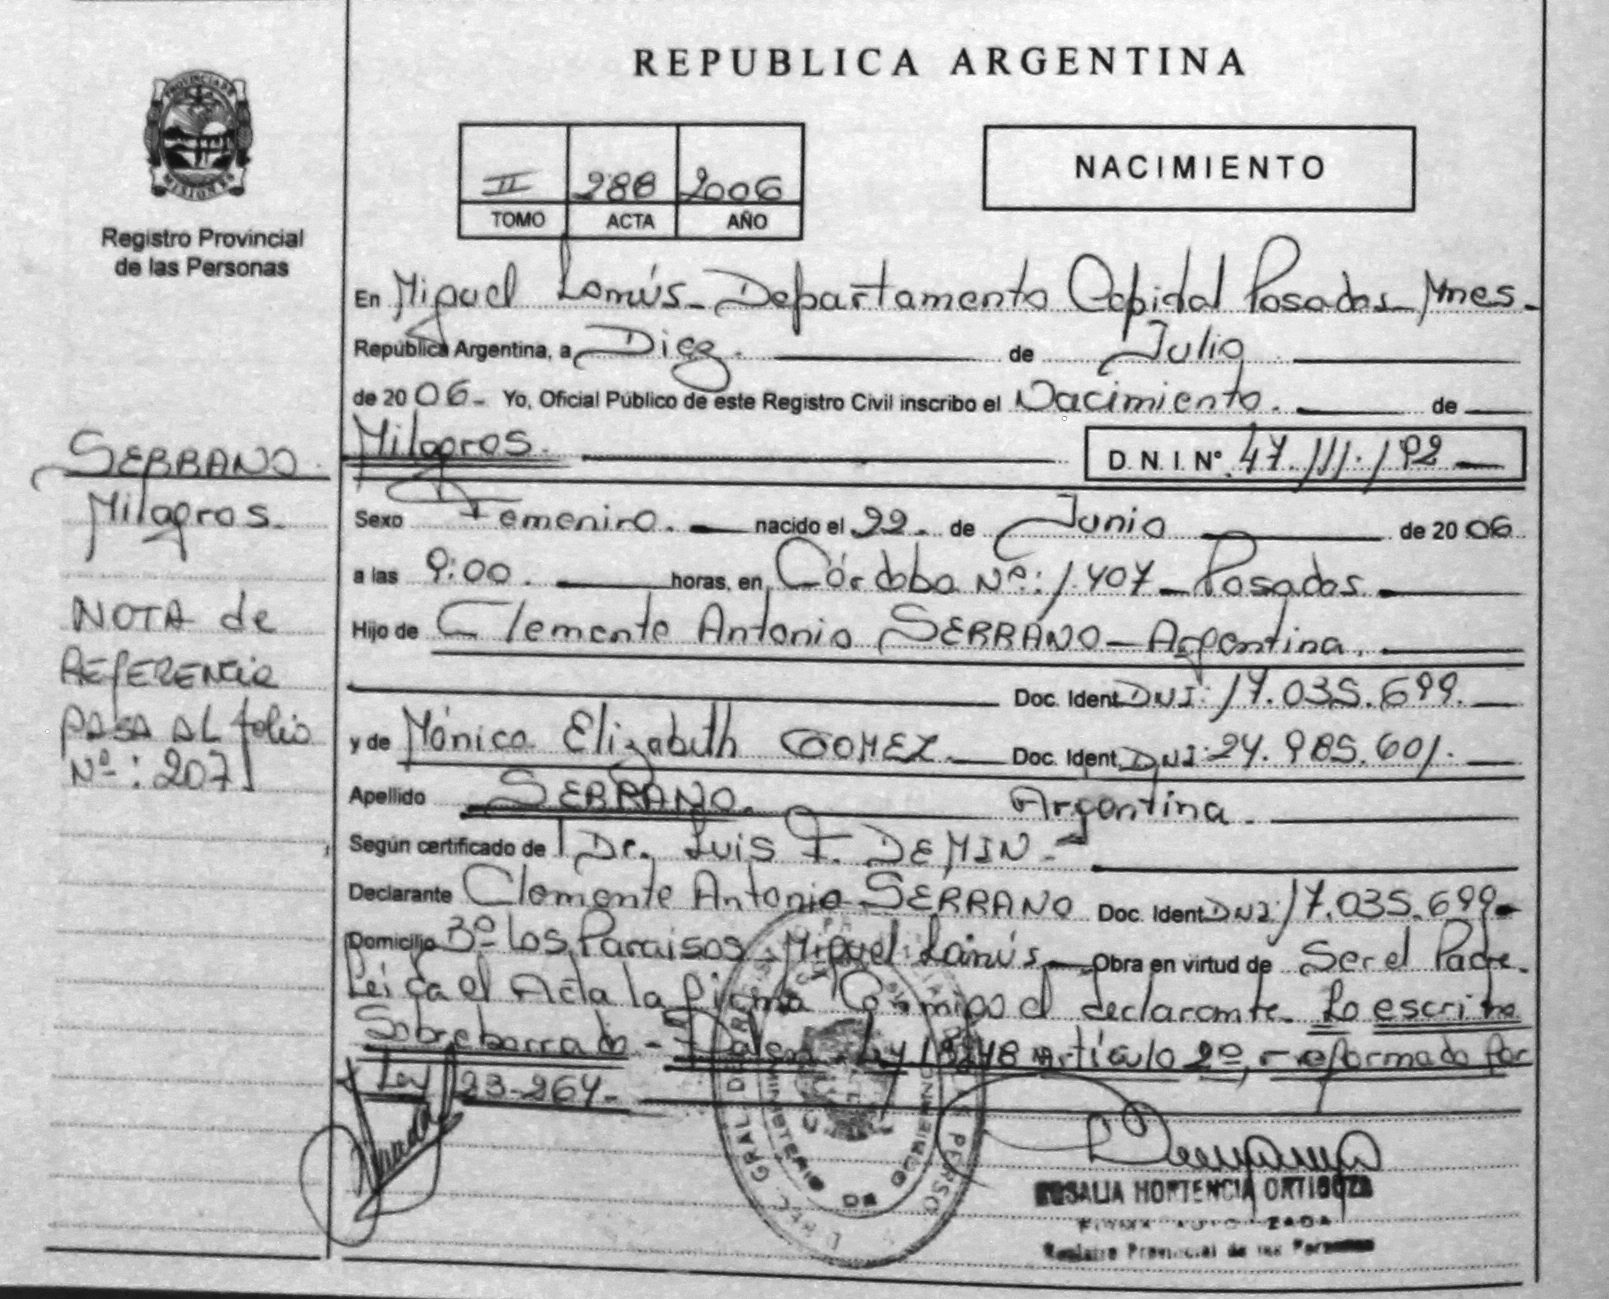 REPUBLICA ARGENTINA
PROVINCIA DE
MISIONES
Registro Provincial
de las Personas
II 288 2006
TOMO ACTA AÑO
NACIMIENTO
En Miguel Lanús - Departamento Capital Posadas Mnes.-
República Argentina, a Diez. de Julio
de 2006 - Yo, Oficial Público de este Registro Civil inscribo el Nacimiento. de
Milagros. D. N. I. N° 47.111.192
SERRANO.
Milagros.
Sexo Femenino. nacido el 22. de Junio de 2006
a las 9:00. horas, en Córdoba Nº: 1.407 - Posadas
NOTA de
REFERENCIA
PASA AL folio
Nº: 207
Hijo de Clemente Antonio SERRANO - Argentina.
Doc. Ident. DNI: 17.035.699.
y de Mónica Elizabeth GOMEZ. Doc. Ident. DNI: 24.985.601.
Apellido SERRANO. Argentina.
Según certificado de Dr. Luis F. DEMIN -
Declarante Clemente Antonio SERRANO Doc. Ident. DNI: 17.035.699-
Domicilio Bº Los Paraisos - Miguel Lanús. Obra en virtud de Ser el Padre.
Leída el Acta la firma Conmigo el declarante. Lo escrito
Sobreborrado - 18248 Artículo 2º, reformado por
Ley 23-264.
ROSALIA HORTENCIA ORTIGOZA
FIRMA AUTORIZADA
Registro Provincial de las Personas